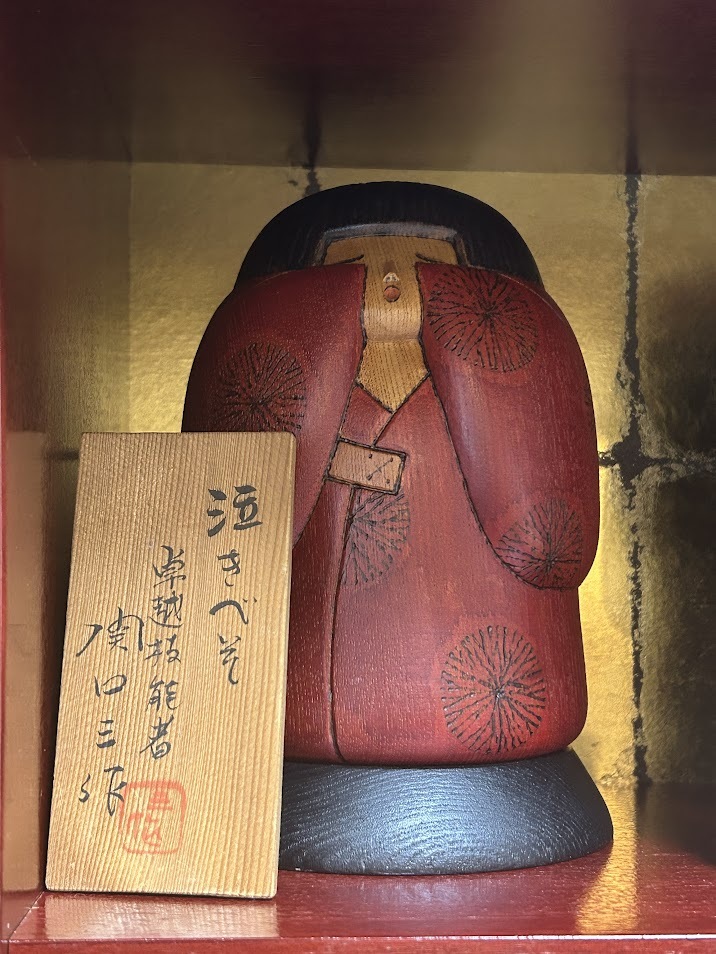 泣きべそ
卓越技能者
関口三作
三作